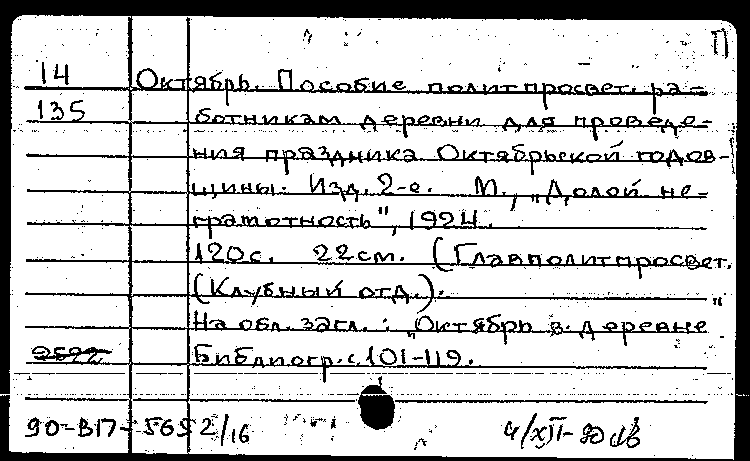 П
14 Октябрь. Пособие политпросвет. ра-
135 ботникам деревни для проведе-
ния праздника Октябрьской годов-
щины. Изд. 2-е. М., „Долой не-
грамотность", 1924.
120с. 22см. (Главполитпросвет.
(Клубный отд.).
На обл. загл.: „Октябрь в деревне"
2522 Библиогр. с. 101-119.
90-В17-5652/16 4/XII-90